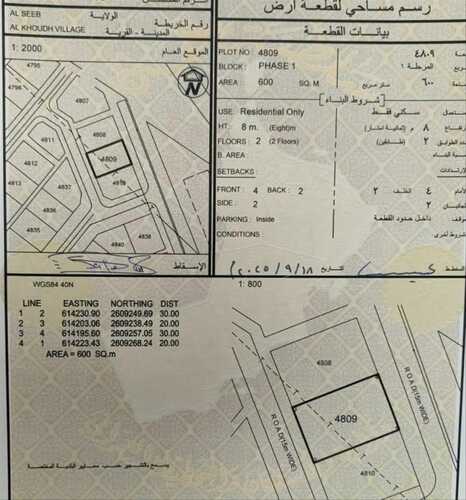 رسم مساحي لقطعة أرض
AL SEEB
الولاية
AL KHOUDH VILLAGE
المدينة - القرية
رقم الخريطة
1: 2000
الموقع العام
N
4795
4796
4807
4811
4808
4812
4809
4813
4837
4810
4838
4835
4840
4838
الإسقاط
بيانات القطعة
PLOT NO : 4809
٤٨٠٩
BLOCK : PHASE 1
المرحلة ١
AREA : 600 SQ. M
متر مربع ٦٠٠
شروط البناء
USE: Residential Only
سكني فقط
HT: 8 m. (Eight)m
٨ م (ثمانية أمتار)
FLOORS : 2 (2 Floors)
٢ (طابقين)
B. AREA
SETBACKS:
FRONT : 4 BACK : 2
٤ الخلف ٢
SIDE : 2
٢
PARKING : Inside
داخل حدود القطعة
CONDITIONS
شروط أخرى
التاريخ ٢٠٢٥/٩/١٨
WGS84 40N
LINE EASTING NORTHING DIST
1 2 614230.90 2609249.69 30.00
2 3 614203.06 2609238.49 20.00
3 4 614195.60 2609257.05 30.00
4 1 614223.43 2609268.24 20.00
AREA = 600 SQ.m
1: 800
4808
4809
4810
ROAD(15m WIDE)
ROAD(15m WIDE)
يسمح بالتشجير حسب معايير البلدية المعتمدة